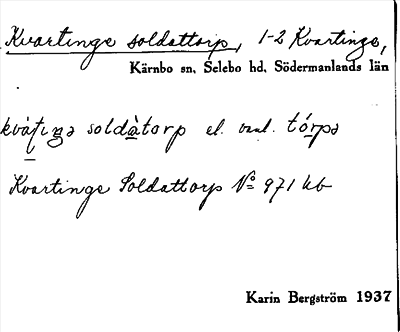 Kvartinge soldattorp, 1-2 Kvartinge,
Kärnbo sn, Selebo hd, Södermanlands län
soldàtorp el. vanl. tórpə
Kvartinge Soldattorp No 971 kb
Karin Bergström 1937